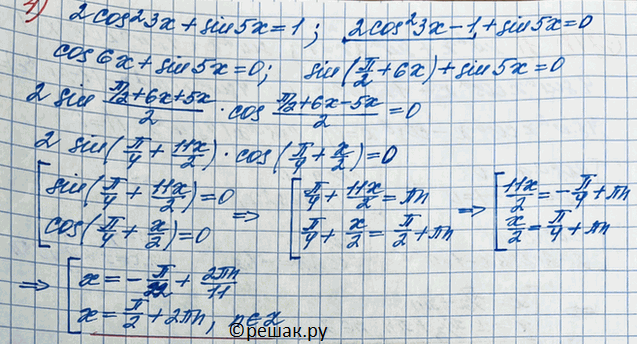 4) 2cos²3x + sin5x = 1; 2cos²3x − 1 + sin5x = 0
cos6x + sin5x = 0; sin(π/2 + 6x) + sin5x = 0
2 sin (π/2 + 6x + 5x)/2 · cos (π/2 + 6x − 5x)/2 = 0
2 sin(π/4 + 11x/2) · cos(π/4 + x/2) = 0
[ sin(π/4 + 11x/2) = 0 ⇒ [ π/4 + 11x/2 = πn ⇒ [ 11x/2 = −π/4 + πn
cos(π/4 + x/2) = 0 π/4 + x/2 = π/2 + πn x/2 = π/4 + πn
⇒ [ x = −π/22 + 2πn/11
x = π/2 + 2πn, n∈Z
©решак.ру